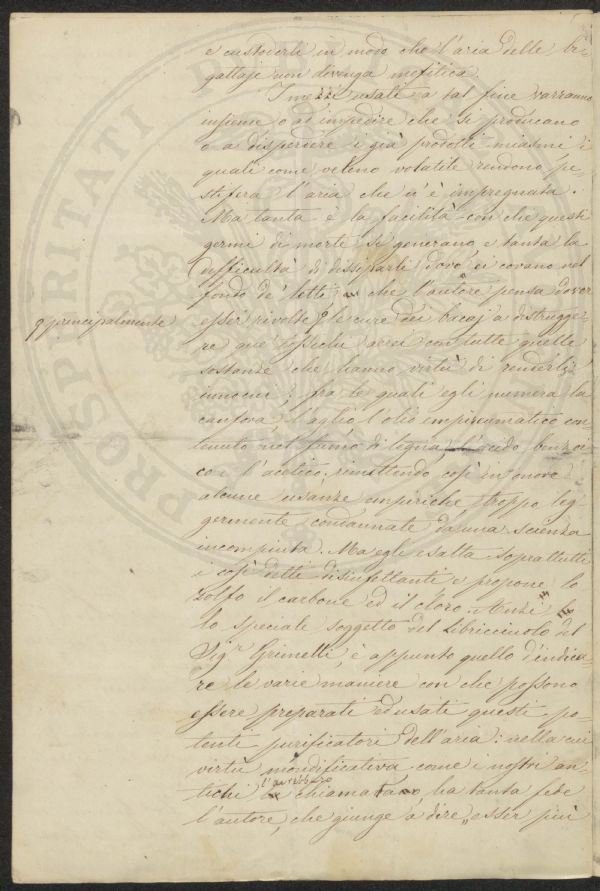 e custodirli in modo che l'aria delle bi-
gattaje non divenga mefitica.
I mezzi usati a tal fine varranno
insieme o ad impedire che si producano
o a disperdere i già prodotti miasmi i
quali come veleno volatile rendono pe-
stifera l'aria che n'è impregnata.
Ma tanta è la facilità con che questi
germi di morte si generano, e tanta la
difficoltà di dissiparli dov'ei covano nel
fondo de' letti, che l'autore pensa dover
principalmente
esser rivolte le cure dei bacaj a distrugge-
re que' tossichi aerei con tutte quelle
sostanze che hanno virtù di renderli
innocui: fra le quali egli numera la
canfora, l'aglio, l'olio empireumatico con-
tenuto nel fumo di legna, l'acido benzoi-
co e l'acetico, rimettendo così in onore
alcune usanze empiriche troppo leg-
germente condannate da una scienza
incompiuta. Ma egli esalta soprattutti
i così detti disinfettanti e propone lo
zolfo il carbone ed il cloro. Anzi
lo speciale soggetto del libricciuolo del
Sig.r Grimelli, è appunto quello d'indica-
re le varie maniere con che possono
essere preparati ed usati questi po-
tenti purificatori dell'aria: nella cui
virtù mondificativa come i nostri an-
l'avrebbero
tichi chiamata, ha tanta fede
l'autore, che giunge a dire „ esser più
PROSPERITATI